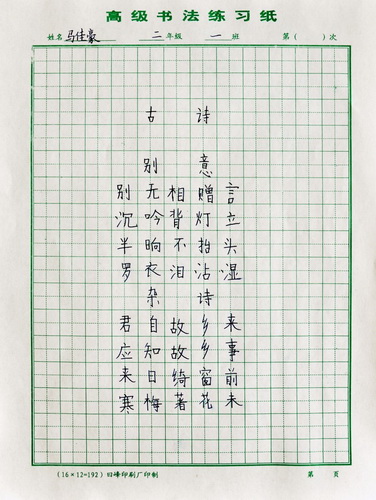 高级书法练习纸
姓名 马佳豪 二年级 一班 第( )次
古诗
别意
别无相赠言
沉吟背灯立
半晌不抬头
罗衣泪沾湿
杂诗
君自故乡来
应知故乡事
来日绮窗前
寒梅著花未
(16×12=192) 印刷厂印制 第 页